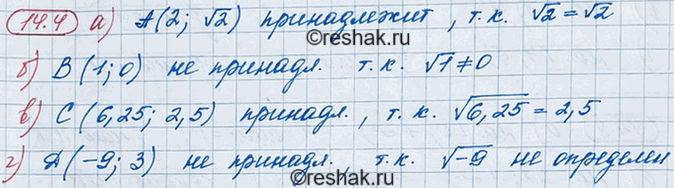 14.4 а) А(2; √2) принадлежит, т.к. √2 = √2
©reshak.ru
б) В(1; 0) не принадл. т.к. √1 ≠ 0
в) С(6,25; 2,5) принадл., т.к. √6,25 = 2,5
г) Д(-9; 3) не принадл. т.к. √-9 не определен